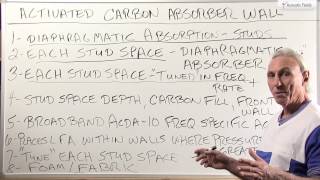 ACTIVATED CARBON ABSORBER WALL
Acoustic Fields
1- DIAPHRAGMATIC ABSORPTION - STUDS
2- EACH STUD SPACE - DIAPHRAGMATIC
ABSORBER
3- EACH STUD SPACE - "TUNED IN FREQ +
RATE
4- STUD SPACE DEPTH, CARBON FILL, FRONT
WALL
5- BROADBAND ACDA-10 FREQ SPECIFIC AC
6- PLACES LFA WITHIN WALLS WHERE PRESSURE
GREATE
7- "TUNE" EACH STUD SPACE
8- FOAM / FABRIC